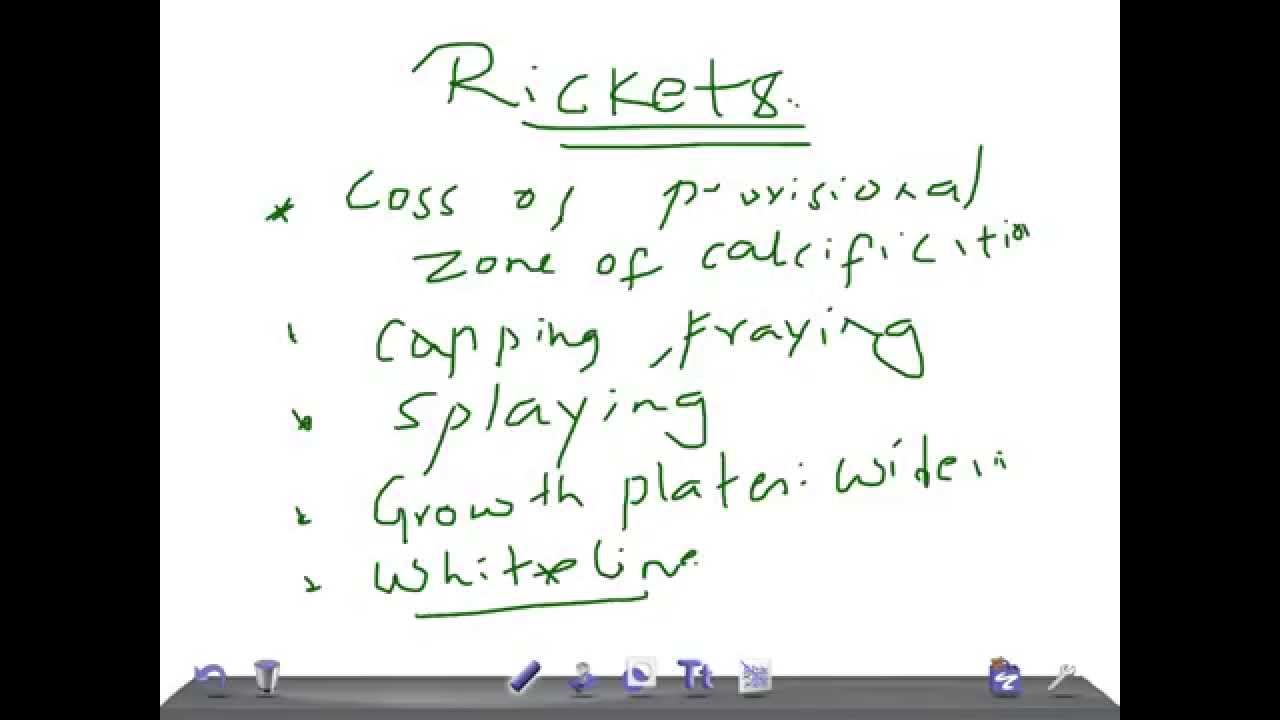 Rickets.
* Loss of provisional
zone of calcificition
capping, Fraying
* Splaying
* Growth plates: widen
* White line
Tt